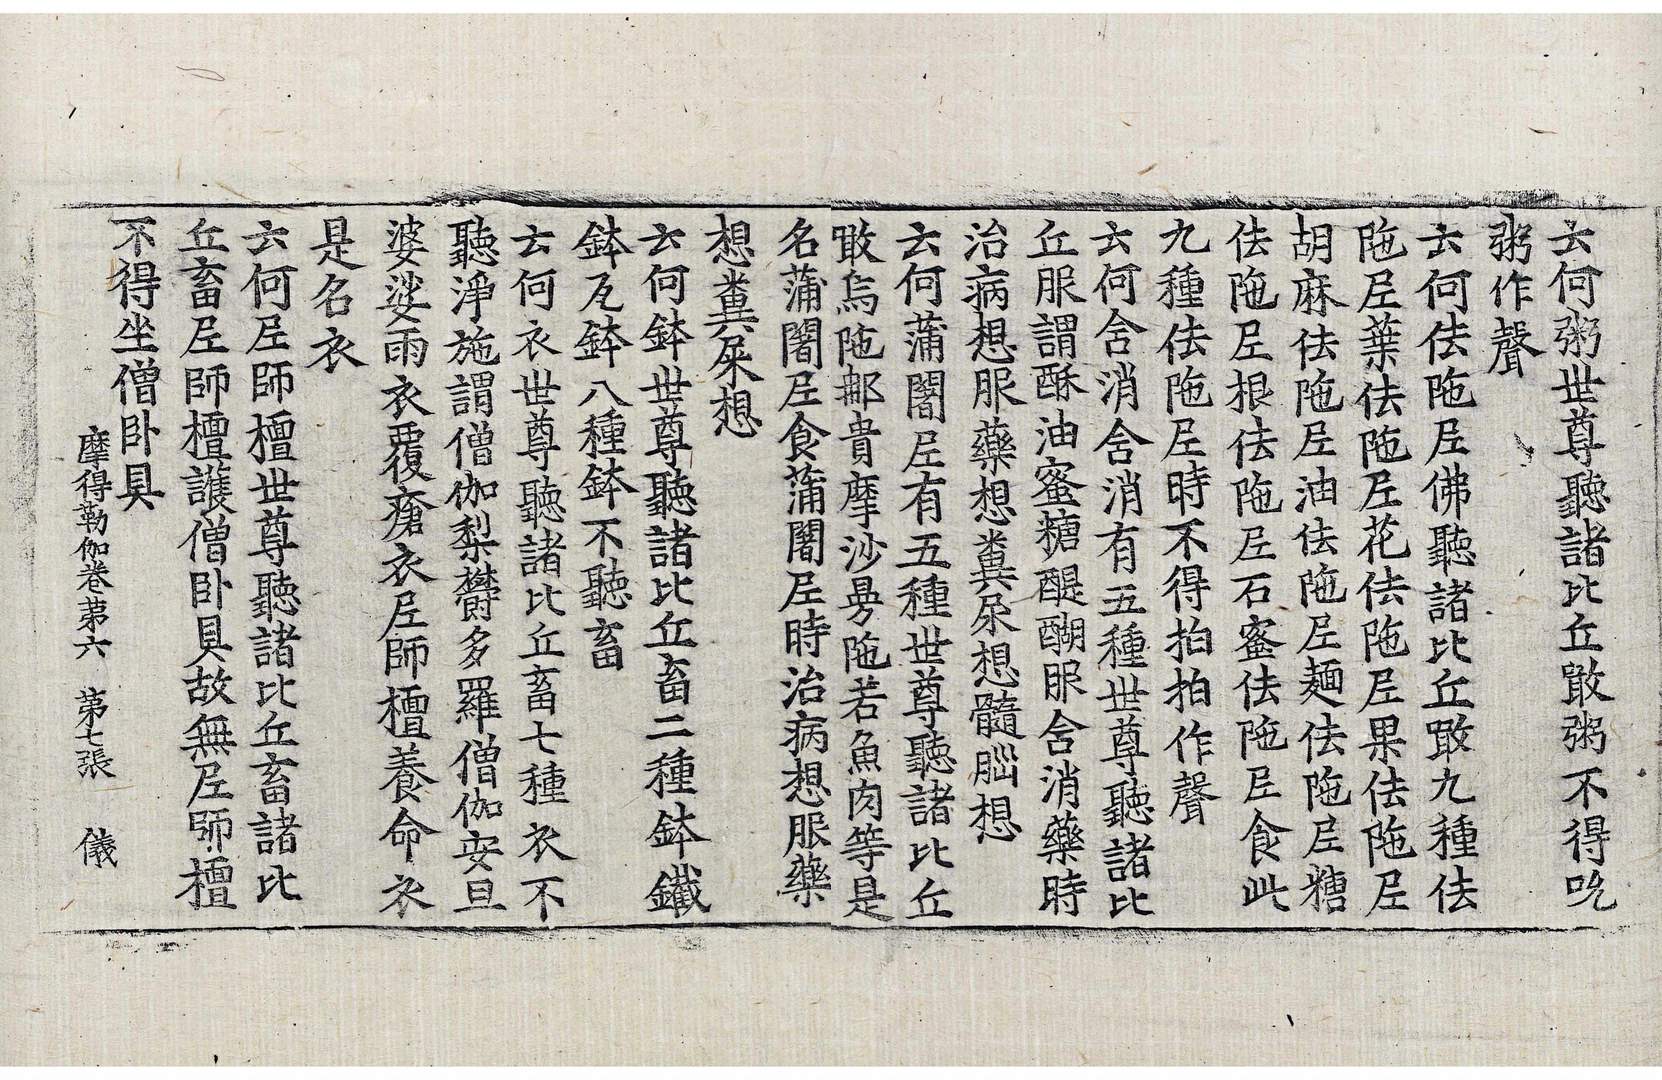 云何粥世尊聽諸比丘噉粥不得吮
粥作聲
云何佉陁𡰱佛聽諸比丘噉九種佉
陁𡰱葉佉陁𡰱花佉陁𡰱果佉陁𡰱
胡麻佉陁𡰱油佉陁𡰱麺佉陁𡰱糖
佉陁𡰱根佉陁𡰱石蜜佉陁𡰱食此
九種佉陁𡰱時不得拍拍作聲
云何含消含消有五種世尊聽諸比
丘服謂酥油蜜糖醍醐服含消藥時
治病想服藥想糞尿想髓腦想
云何蒲闍𡰱有五種世尊聽諸比丘
噉烏陁郍貴摩沙㝵陁若魚肉等是
名蒲闍𡰱食蒲闍𡰱時治病想服藥
想糞屎想
云何鉢世尊聽諸比丘畜二種鉢鐵
鉢瓦鉢八種鉢不聽畜
云何衣世尊聽諸比丘畜七種衣不
聽淨施謂僧伽梨欝多羅僧伽安旦
婆娑雨衣覆瘡衣𡰱師檀養命衣
是名衣
云何𡰱師檀世尊聽諸比丘畜諸比
丘畜𡰱師檀護僧卧具故無𡰱師檀
不得坐僧卧具
摩得勒伽卷苐六　苐七張　儀